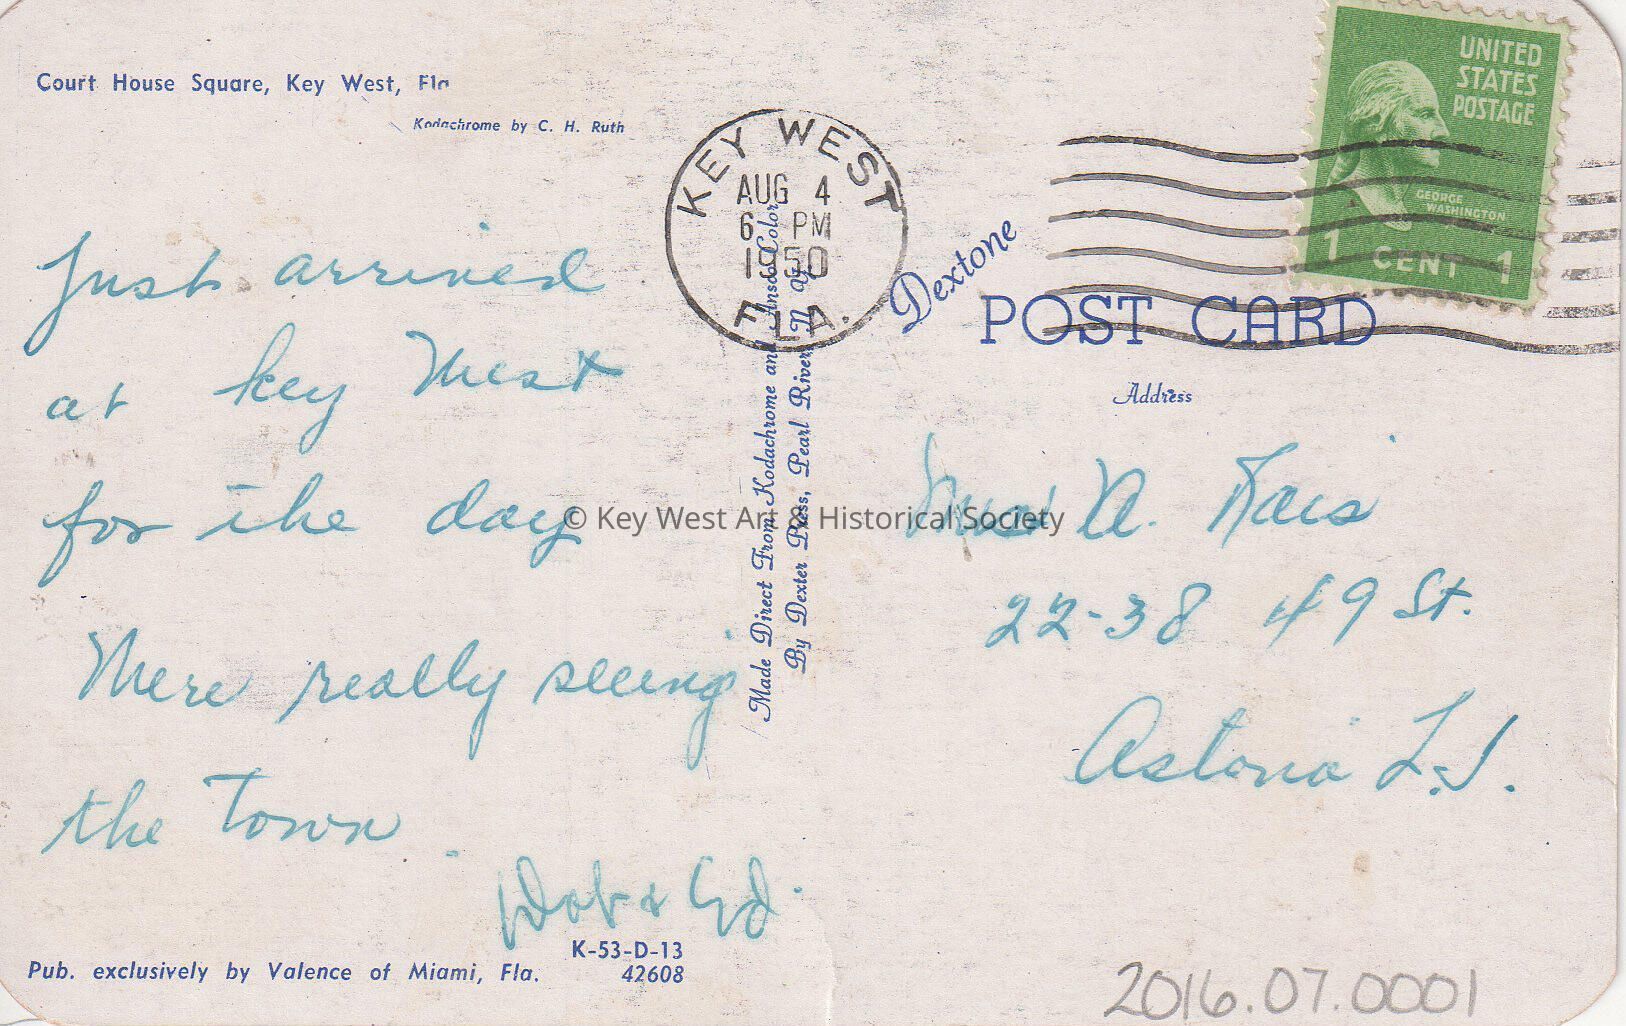 Court House Square, Key West, Fla
Kodachrome by C. H. Ruth
Just arrived
at Key West
for the day
Were really seeing
the Town
& Ed.
K-53-D-13
42608
Pub. exclusively by Valence of Miami, Fla.
KEY WEST
AUG 4
6 PM
1950
FLA.
Made Direct From Kodachrome and Ansco Color
By Dexter Press, Pearl River, N. Y.
UNITED
STATES
POSTAGE
GEORGE
WASHINGTON
1 CENT 1
Dextone
POST CARD
Address
22-38 49 St.
Astoria L.I.
© Key West Art & Historical Society
2016.07.0001